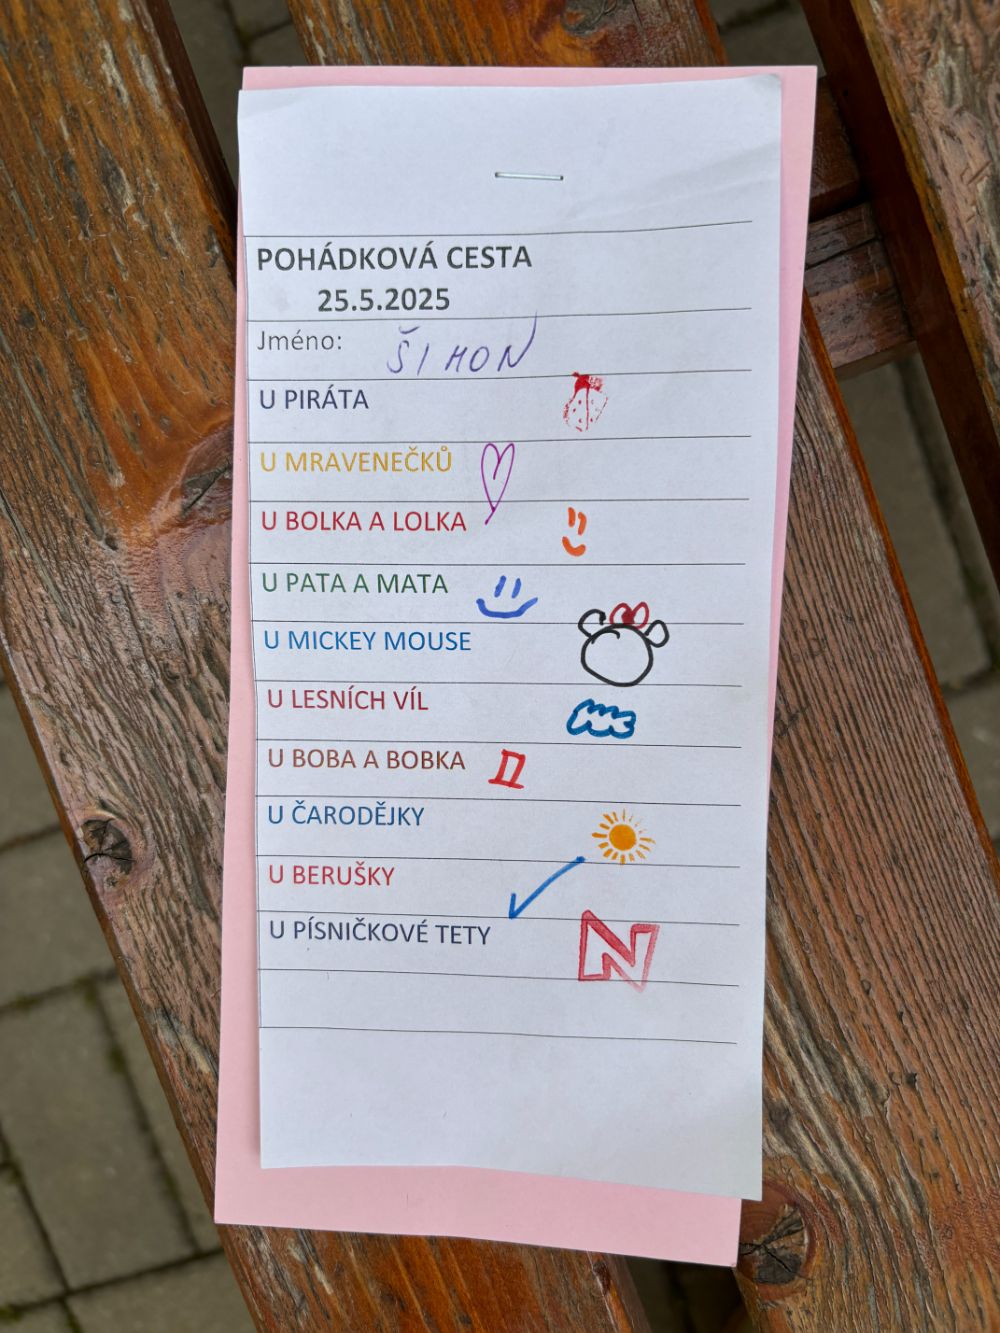 POHÁDKOVÁ CESTA
25.5.2025
Jméno: ŠIMON
U PIRÁTA
U MRAVENEČKŮ
U BOLKA A LOLKA
U PATA A MATA
U MICKEY MOUSE
U LESNÍCH VÍL
U BOBA A BOBKA
U ČARODĚJKY
U BERUŠKY
U PÍSNIČKOVÉ TETY N